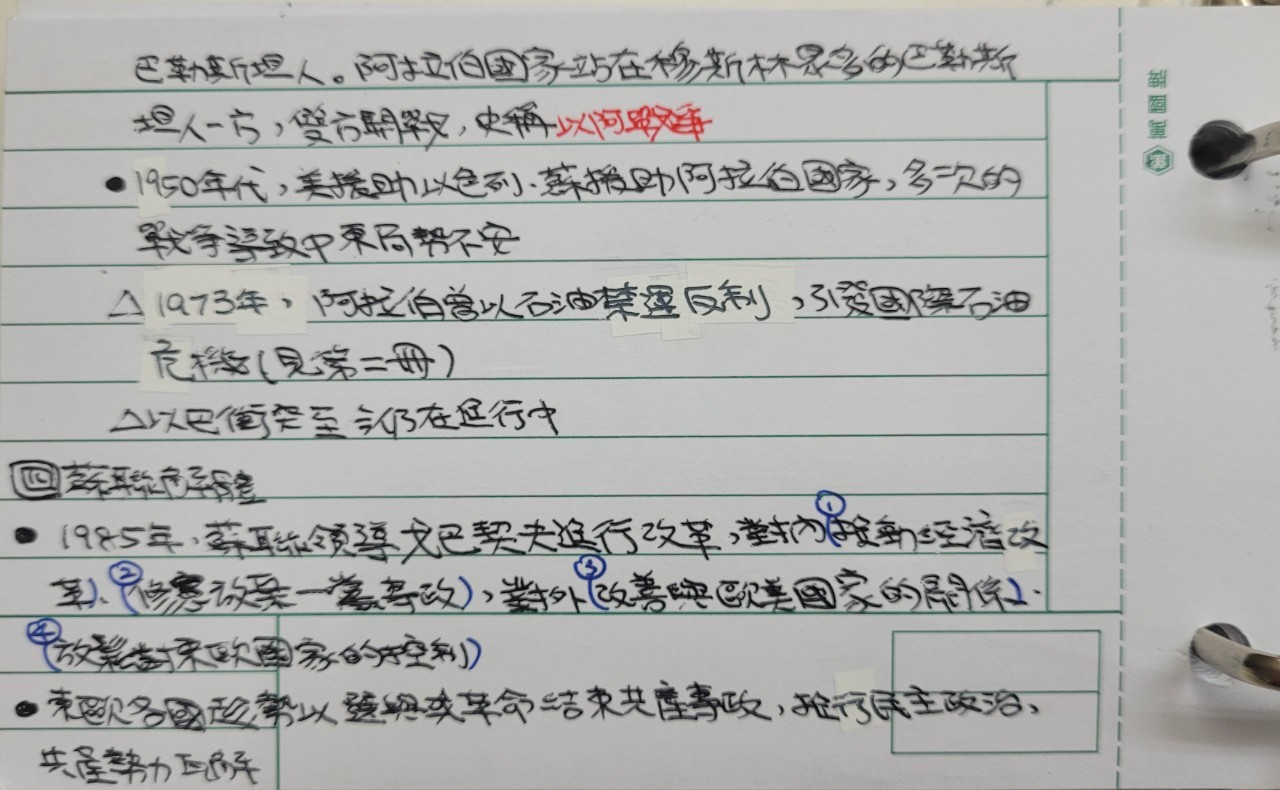 巴勒斯坦人。阿拉伯國家站在穆斯林眾多的巴勒斯
坦人一方，雙方開戰，史稱以阿戰爭
●1950年代，美援助以色列、蘇援助阿拉伯國家，多次的
戰爭導致中東局勢不安
△1973年，阿拉伯曾以石油禁運反制，引發國際石油
危機(見第二冊)
△以巴衝突至今仍在進行中
四蘇聯解體
●1985年，蘇聯領導戈巴契夫進行改革，對內①(推動經濟改
革)、②(修憲放棄一黨專政)，對外③(改善與歐美國家的關係)、
④(放棄對東歐國家的控制)
●東歐各國趁勢以選舉或革命結束共產專政，推行民主政治，
共產勢力瓦解
萬國牌